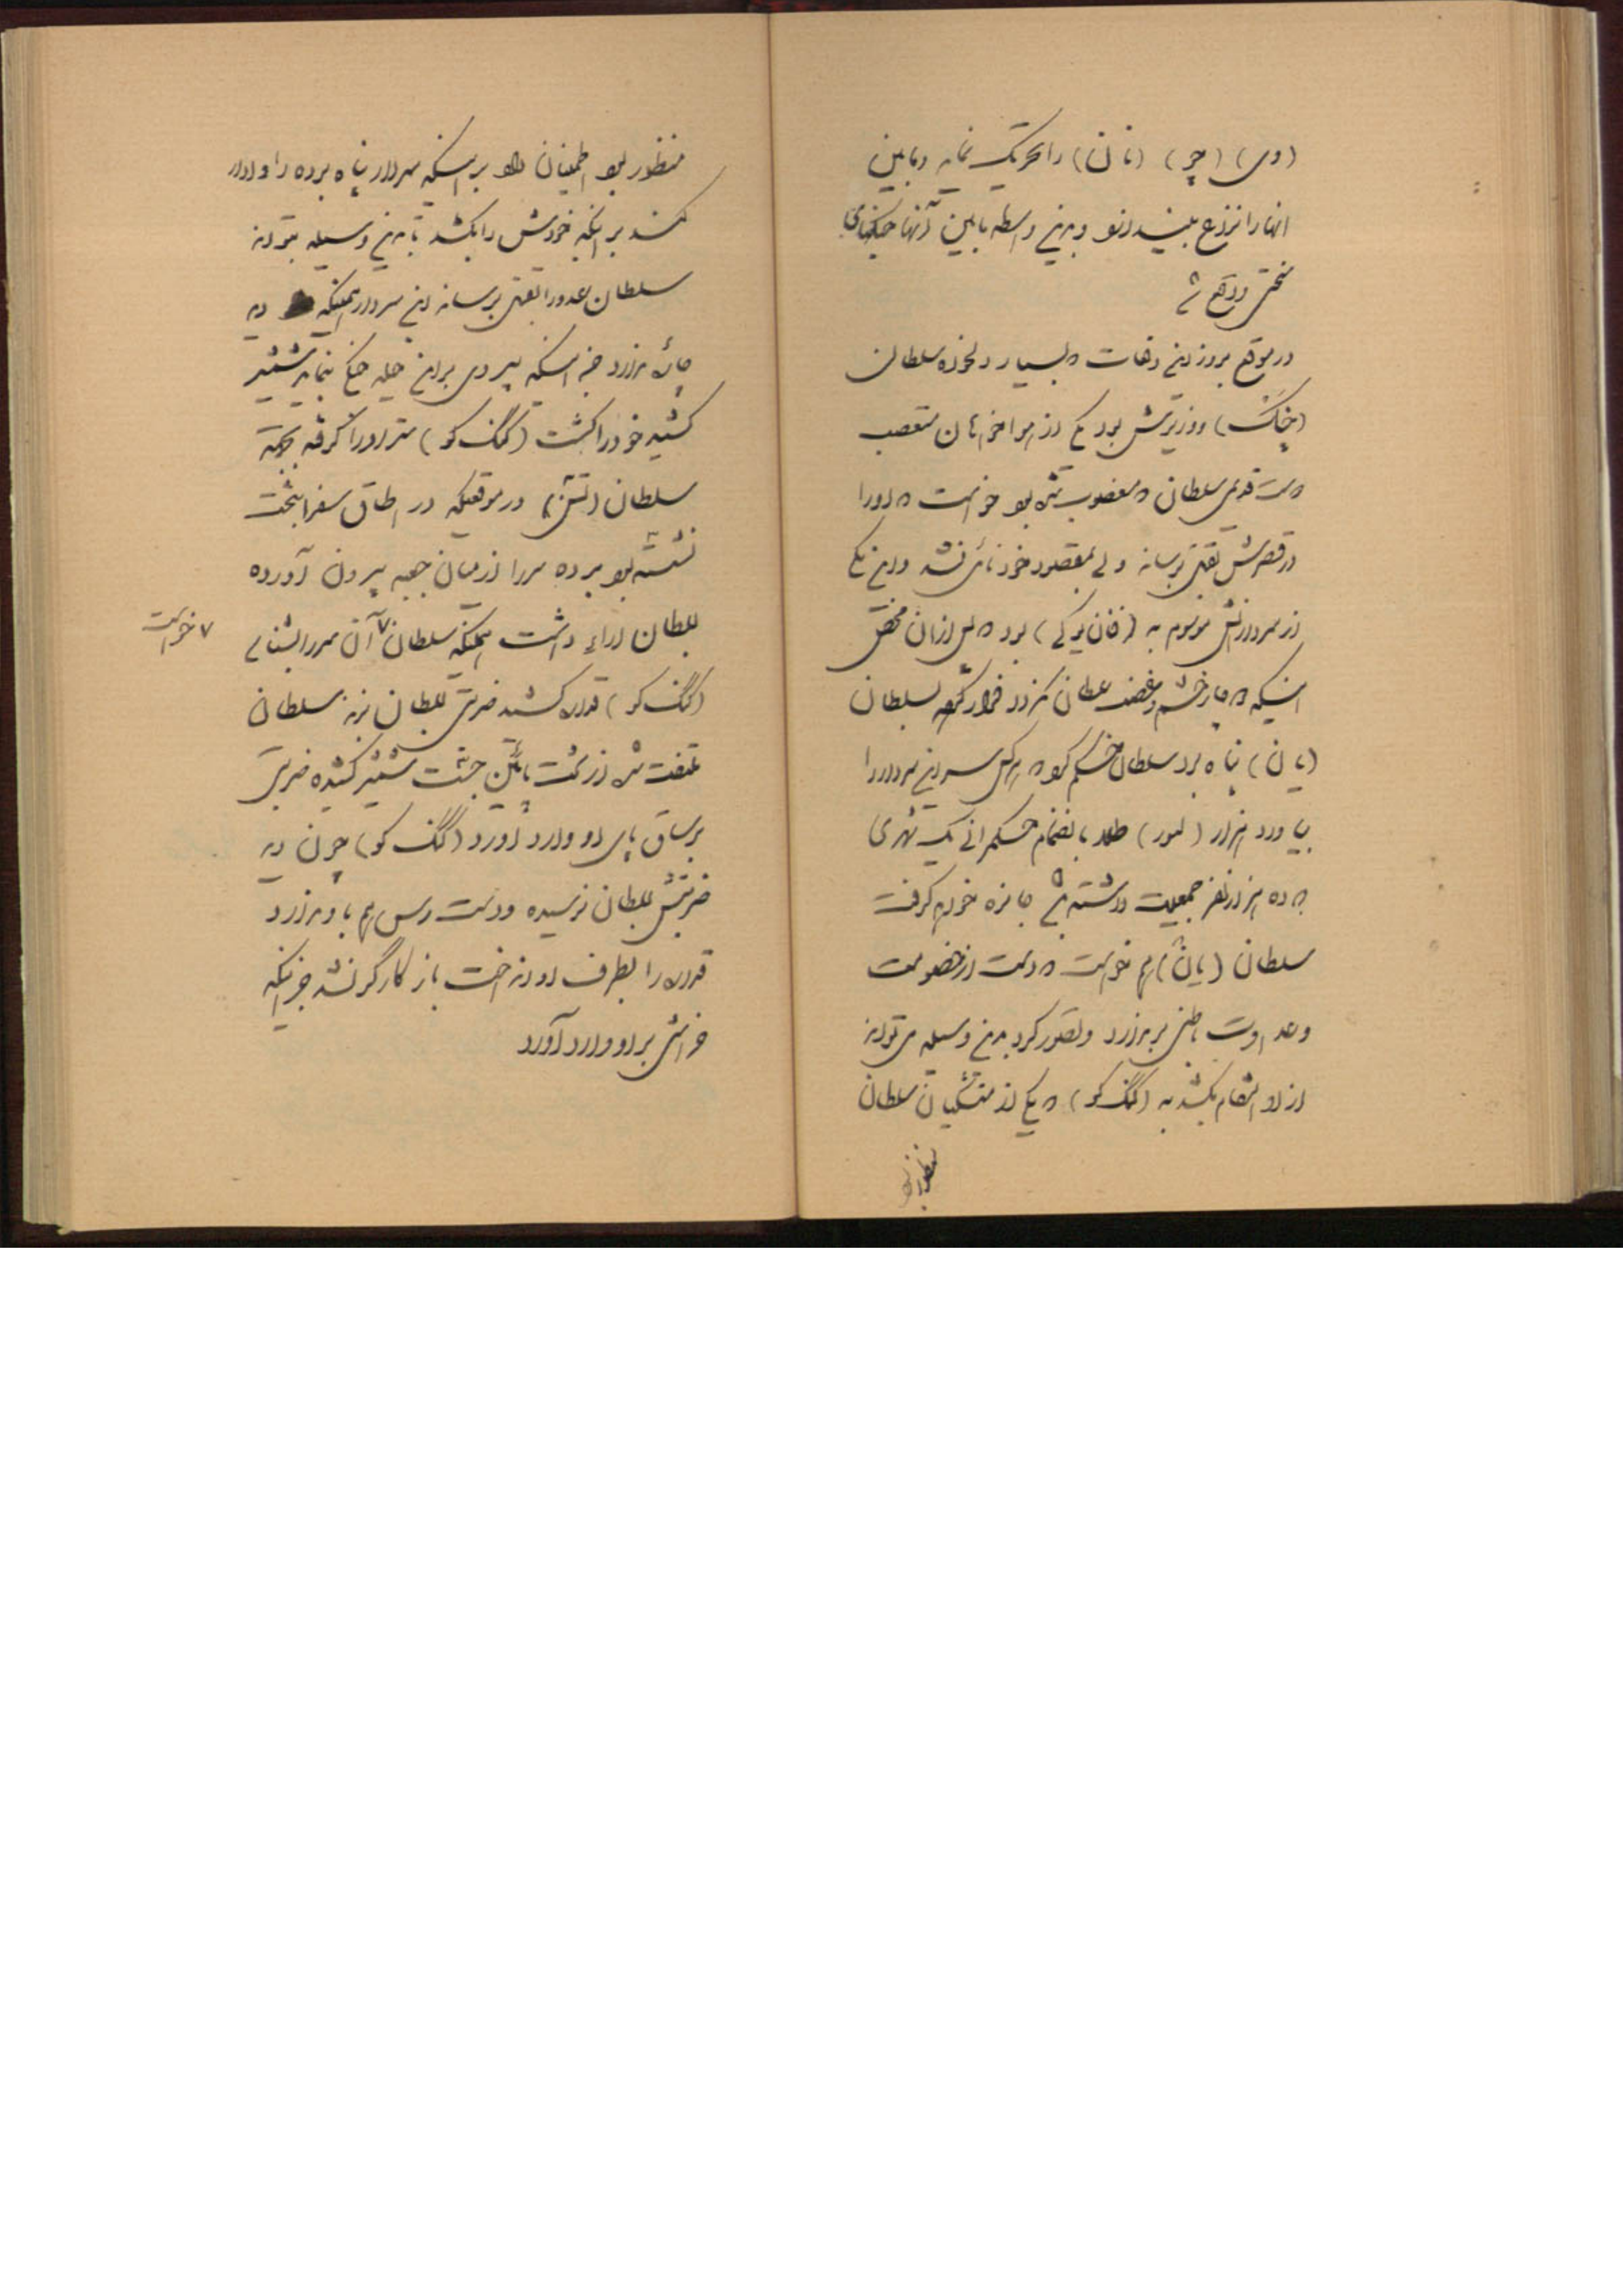 (وی) (چو) (نان) را تحریک نماید و مابین
انها را نزاع بیندازد و بدین واسطه مابین آنها جنگهای
سختی واقع شد
در موقع بروز این وقعات که بسیار دلخواه سلطان
(خاک) و وزیرش بود یکی از امراخوانان متعصب
دست قدیمی سلطان که مغضوب شده بود خواست که او را
در قصرش بقتل برساند ولی بمقصود خود نائل نشد و این یکی
از سردارانش موسوم به (فان یوکی) بود که پس از آن محض
اینکه دچار خشم و غضب سلطان نگردد فرار کرده بسلطان
(یان) پناه برد سلطان حکم کرد که هر کس سر این سردار را
بیاورد هزار (لیور) طلا بانضمام حکمرانی یک شهری
که ده هزار نفر جمعیت داشته باشد جایزه خواهد گرفت
سلطان (یان) هم نخواست که دست از خصومت
و عداوت باطنی بردارد و تصور کرد بدین وسیله می تواند
از او انتقام بکشد به (کنگ کو) که یکی از منشیان سلطان
منظور بود
منظور بود اطمینان داد بر اینکه سردار پناه برده را وادار
کند بر انکه خودش را بکشد تا بدین وسیله بتواند
سلطان عدو را بقتل برساند این سردار همینکه دید
چاره ندارد جز اینکه پیروی براین حیله جنگ بنماید شمشیر
کشیده خود را کشت (کنگ کو) سر او را گرفته بجهة
سلطان (تشن) در موقعیکه در اطاق سفرا بتخت
نشسته بود برده سر را از میان جعبه بیرون آورده
بسلطان ارائه داشت همینکه سلطان ٧ آن سر را بشناسد
٧ خواست
(کنگ کو) قداره کشید ضربتی بسلطان بزند سلطان
ملتفت شده از تخت پائین جست شمشیر کشیده ضربتی
بر ساق پای او وارد آورد (کنگ کو) چون دید
ضربتش بسلطان نرسیده و دست رس هم باو ندارد
قداره را بطرف او انداخت باز کارگر نشد جز اینکه
خراشی بر او وارد آورد